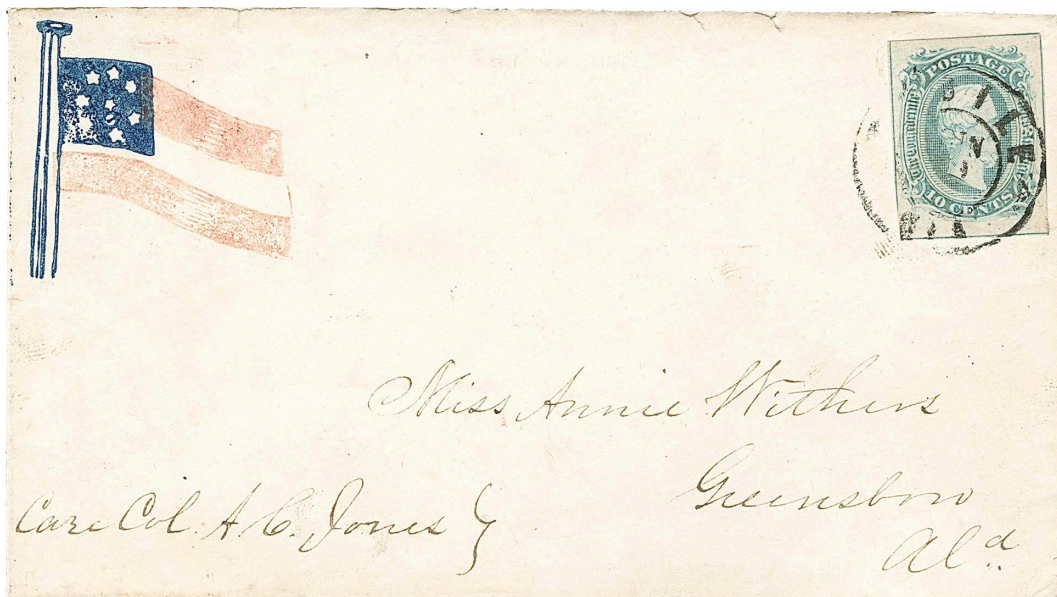 POSTAGE
The Confederate States
10 CENTS
BILE
ALA
Miss Annie Withers
Greensboro
Ala.
Care Col. A. C. Jones